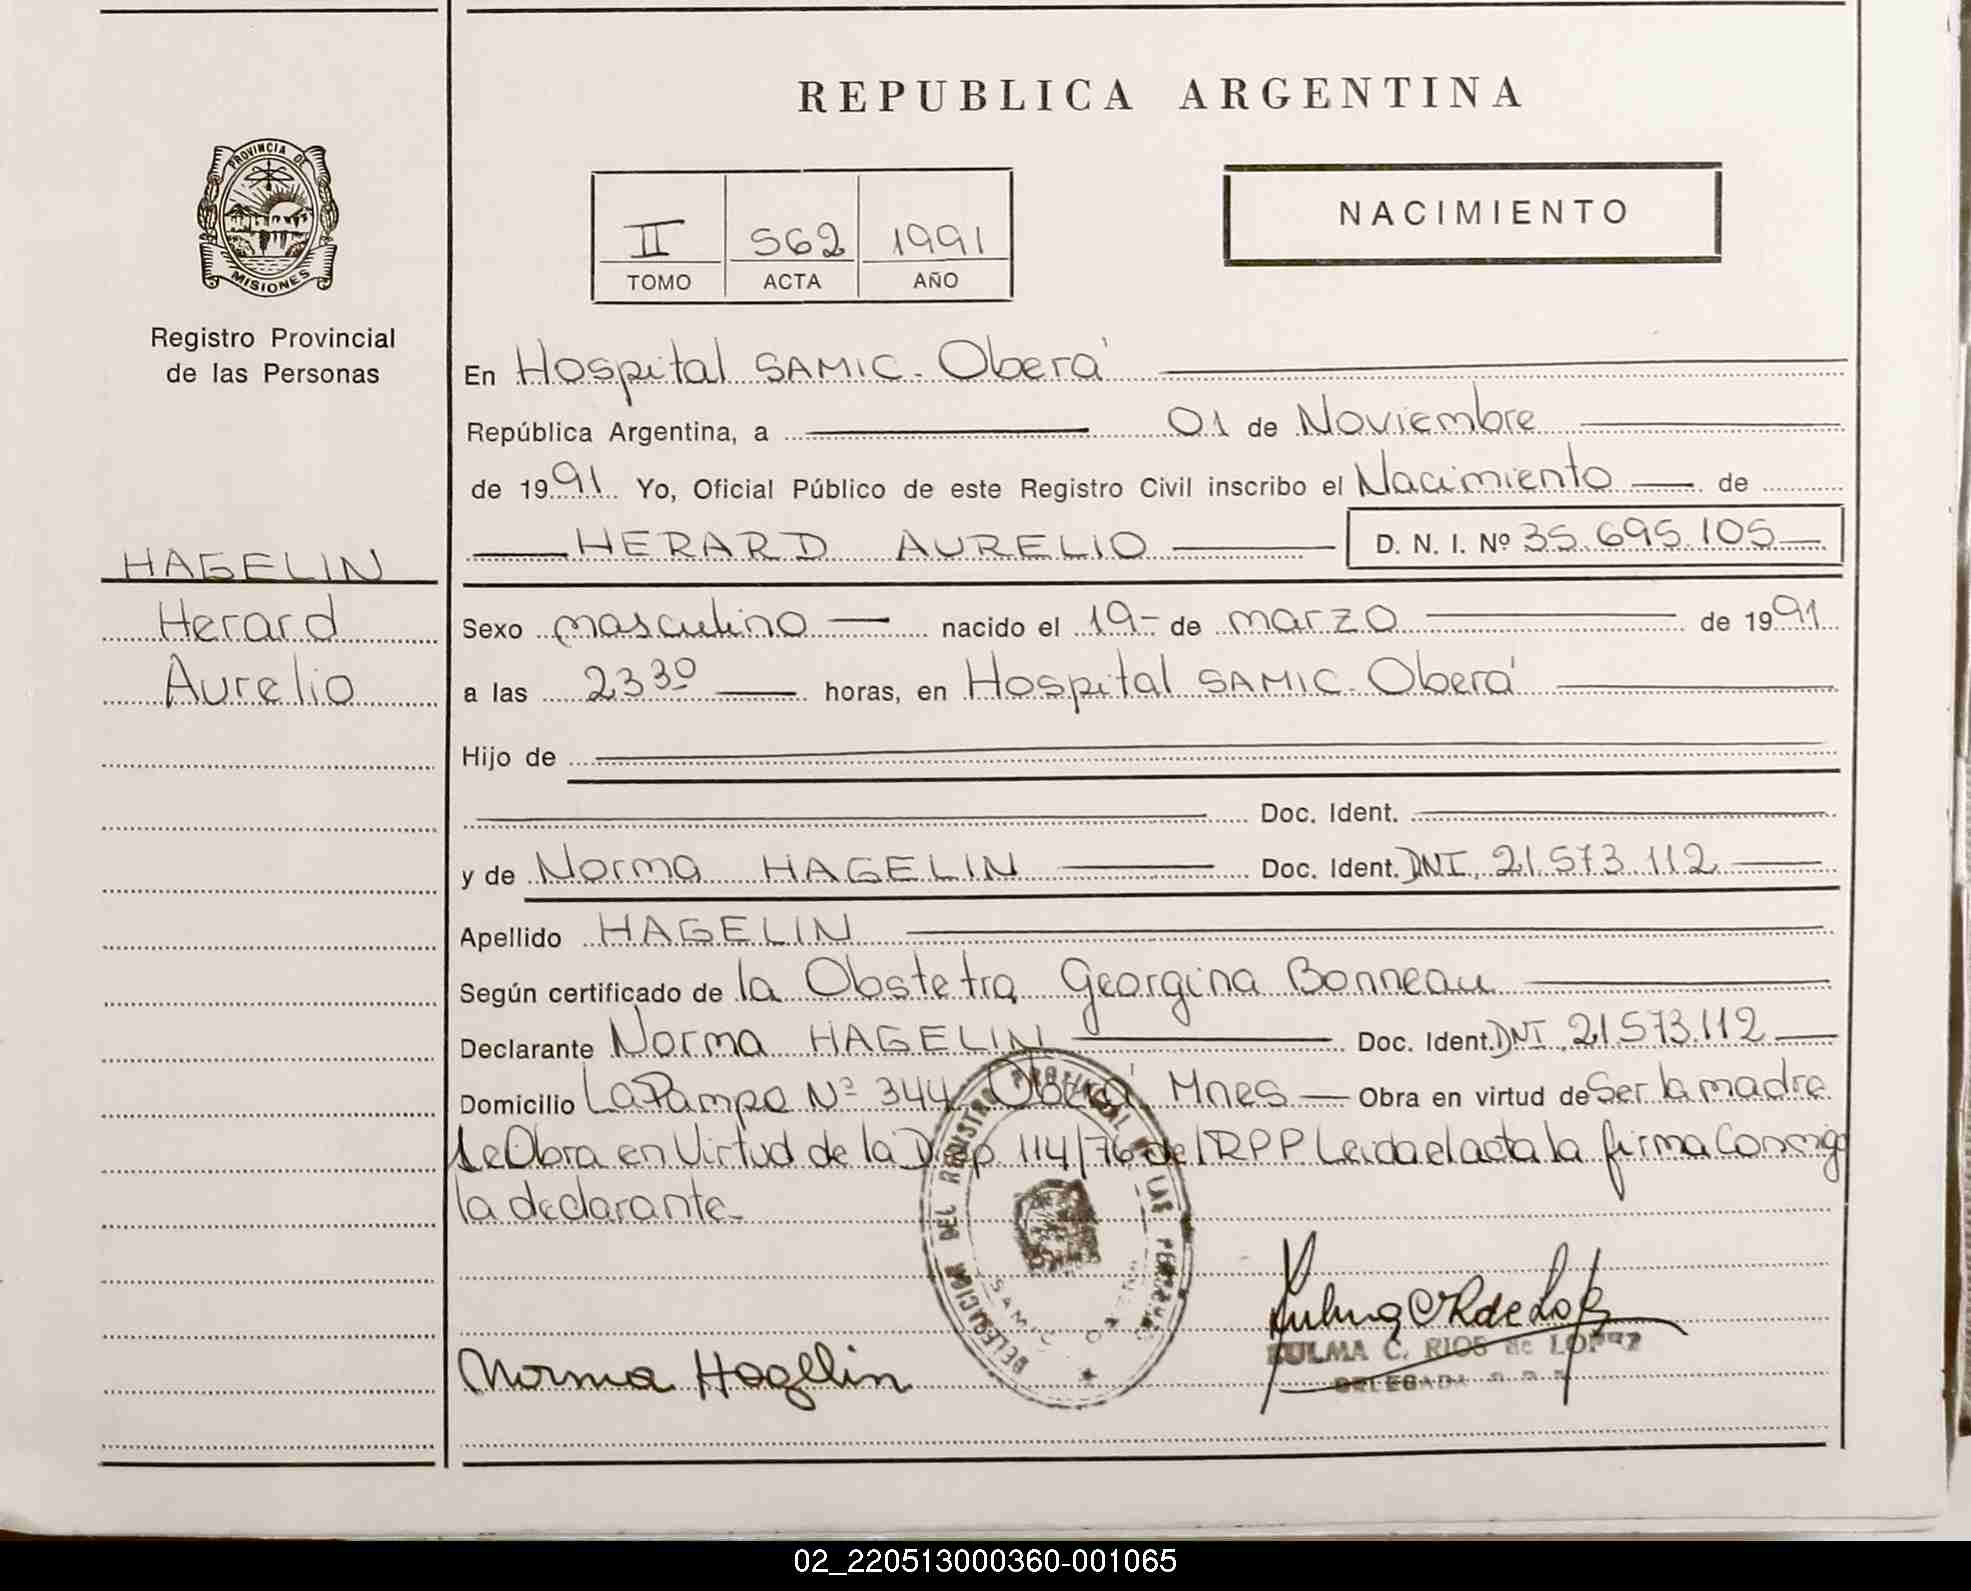 REPUBLICA ARGENTINA
PROVINCIA DE
MISIONES
Registro Provincial
de las Personas
II 562 1991
TOMO ACTA AÑO
NACIMIENTO
En Hospital SAMIC. Oberá
República Argentina, a 01 de Noviembre
de 1991 Yo, Oficial Público de este Registro Civil inscribo el Nacimiento de
HERARD AURELIO D. N. I. Nº 35.695.105
HAGELIN
Herard
Aurelio
Sexo masculino nacido el 19- de marzo de 1991
a las 23 30 horas, en Hospital SAMIC. Oberá
Hijo de
Doc. Ident.
y de Norma HAGELIN Doc. Ident. DNI. 21.573.112
Apellido HAGELIN
Según certificado de la Obstetra Georgina Bonneau
Declarante Norma HAGELIN Doc. Ident. DNI. 21.573.112
Domicilio La Pampa Nº 344 Oberá Mnes Obra en virtud de Ser la madre
Se Obra en Virtud de la Disp 114/76 del RPP Leida el acta la firma Conmigo
la declarante-
DELEGACION DEL REGISTRO PROVINCIAL DE LAS PERSONAS
SAMIC OBERA
Norma Hagelin
ZULMA C. RIOS de LOPEZ
DELEGADA
02_220513000360-001065